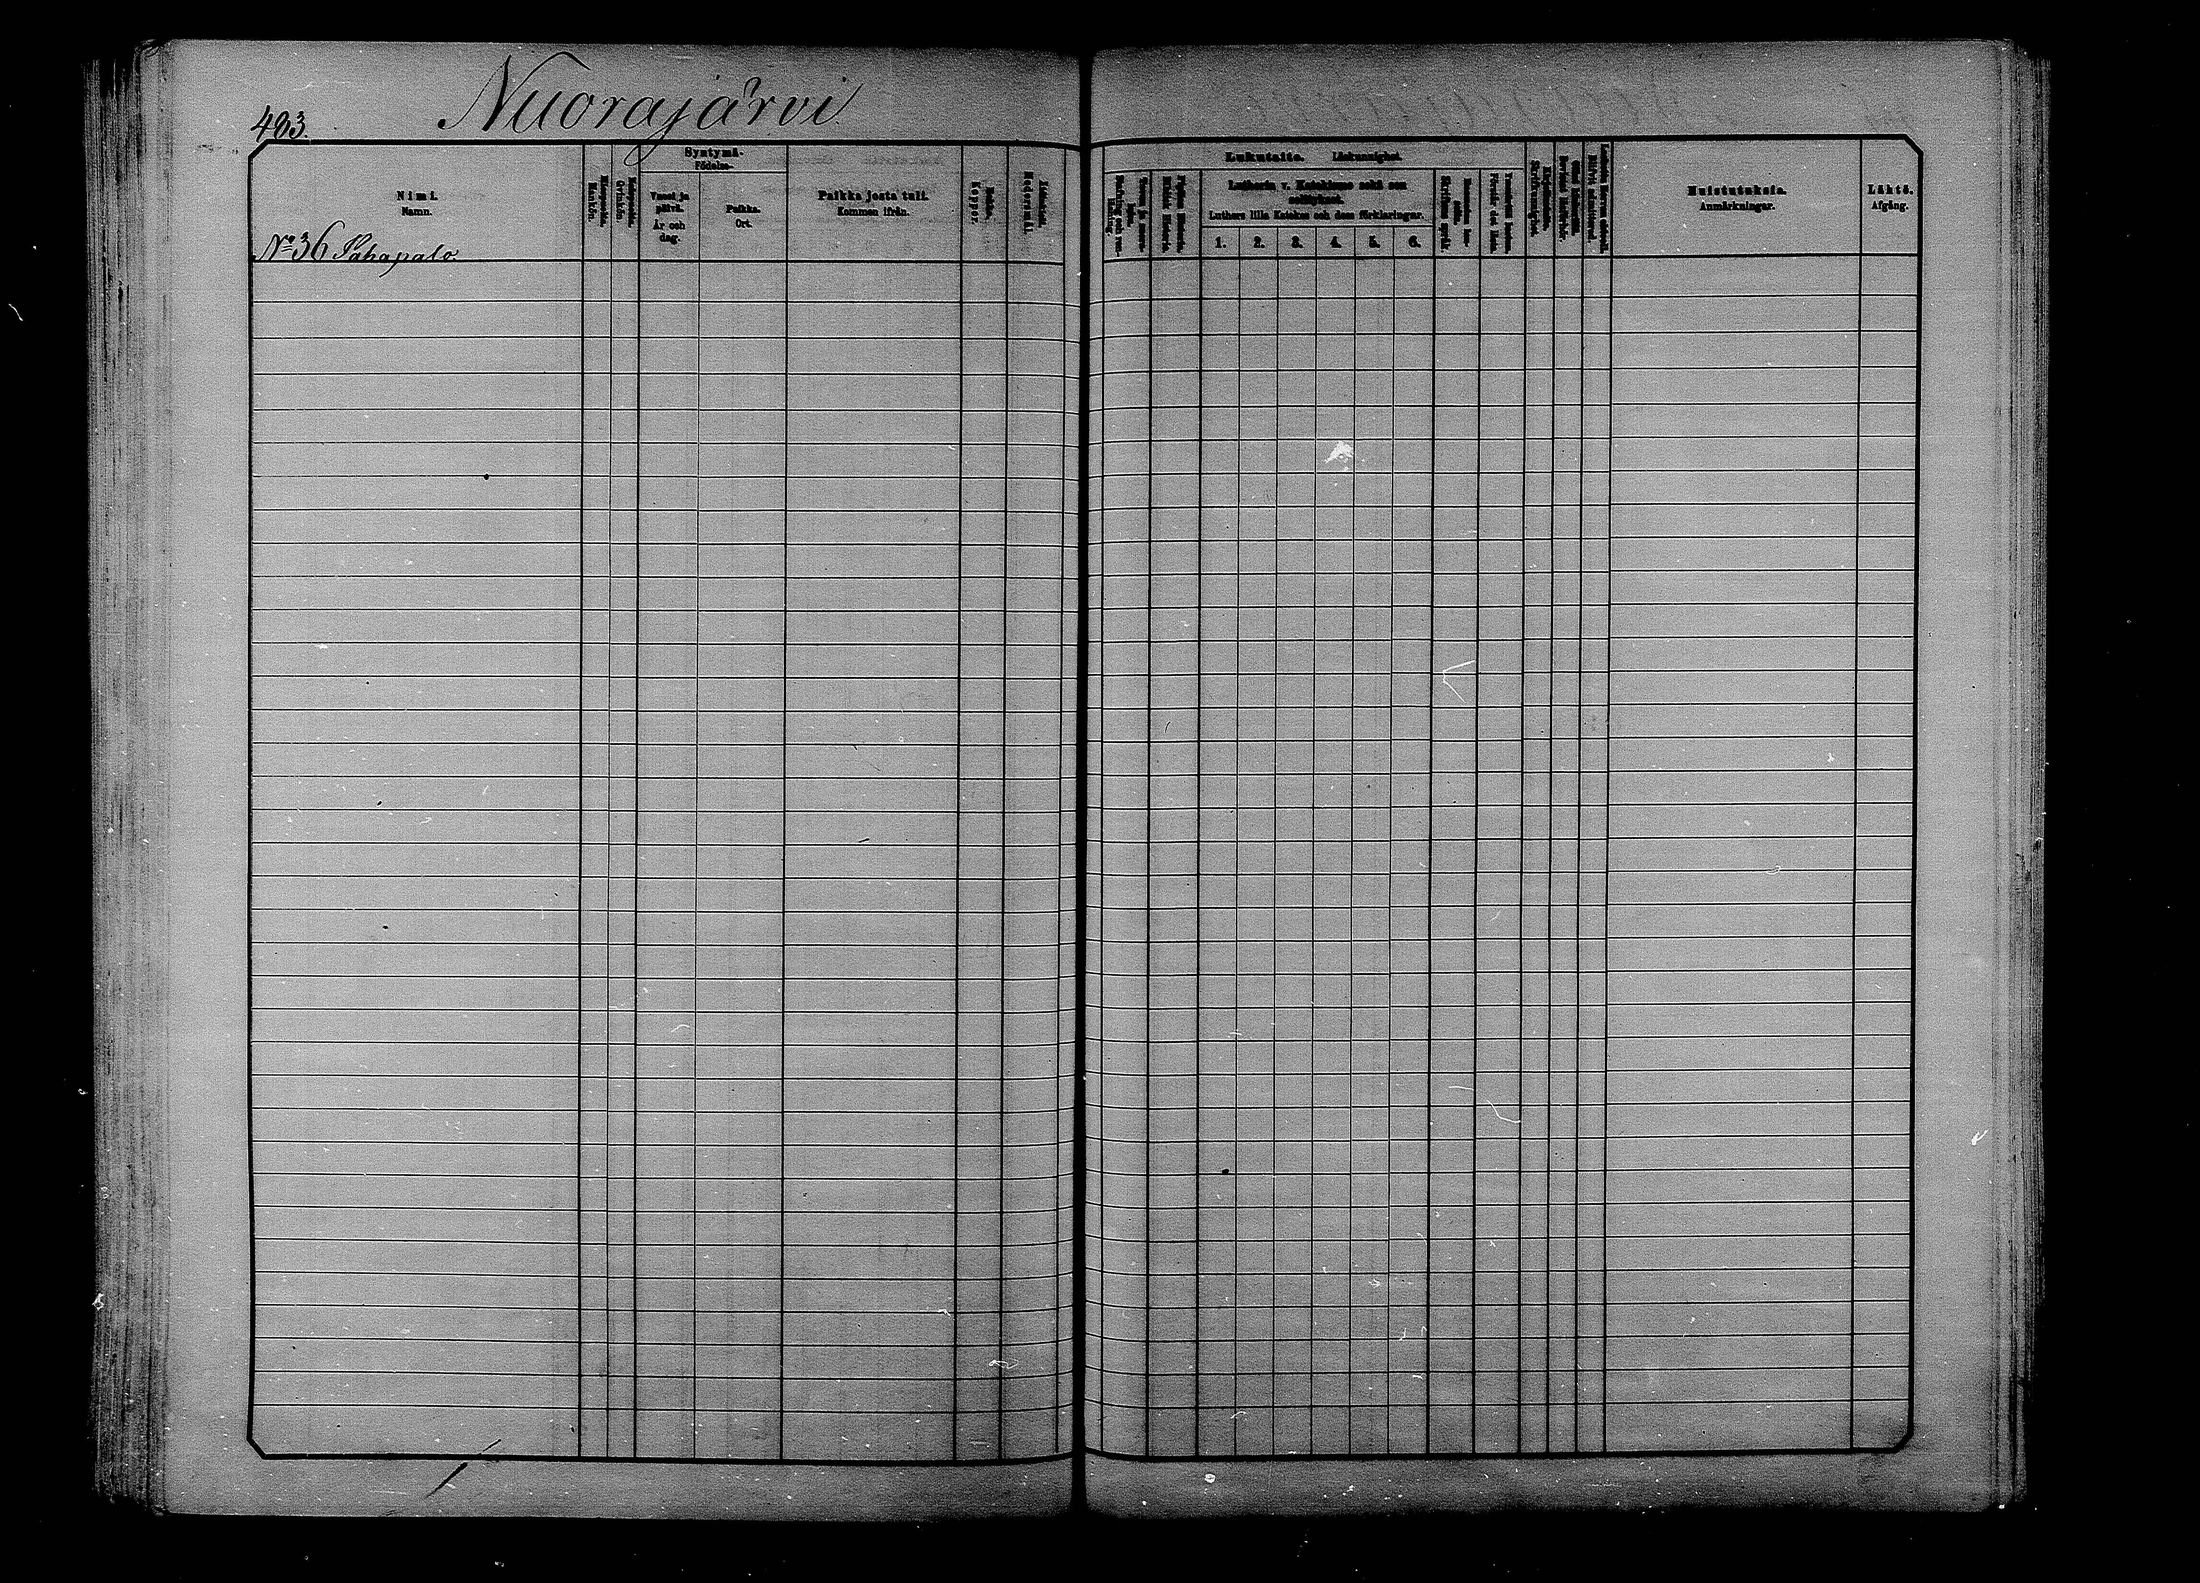 Nuorajärvi
483.
Nimi.
Namn.
Miespuolia.
Mankön.
Syntymä-
Födelse-
Vuosi ja
päivä.
År och
dag.
Paikka.
Ort.
Paikka josta tuli.
Kommen ifrån.
Rokko.
Koppor.
Nº 36 Pahapalo.
Lukutaito. Läskunnighet.
Lutherin v. Katekismo sekä sen
selitykset.
Luthers lilla Katekes och dess förklaringar.
1. 2. 3. 4. 5. 6.
Förstår det lästa
Muistutuksia.
Anmärkningar.
Lähtö.
Afgång.